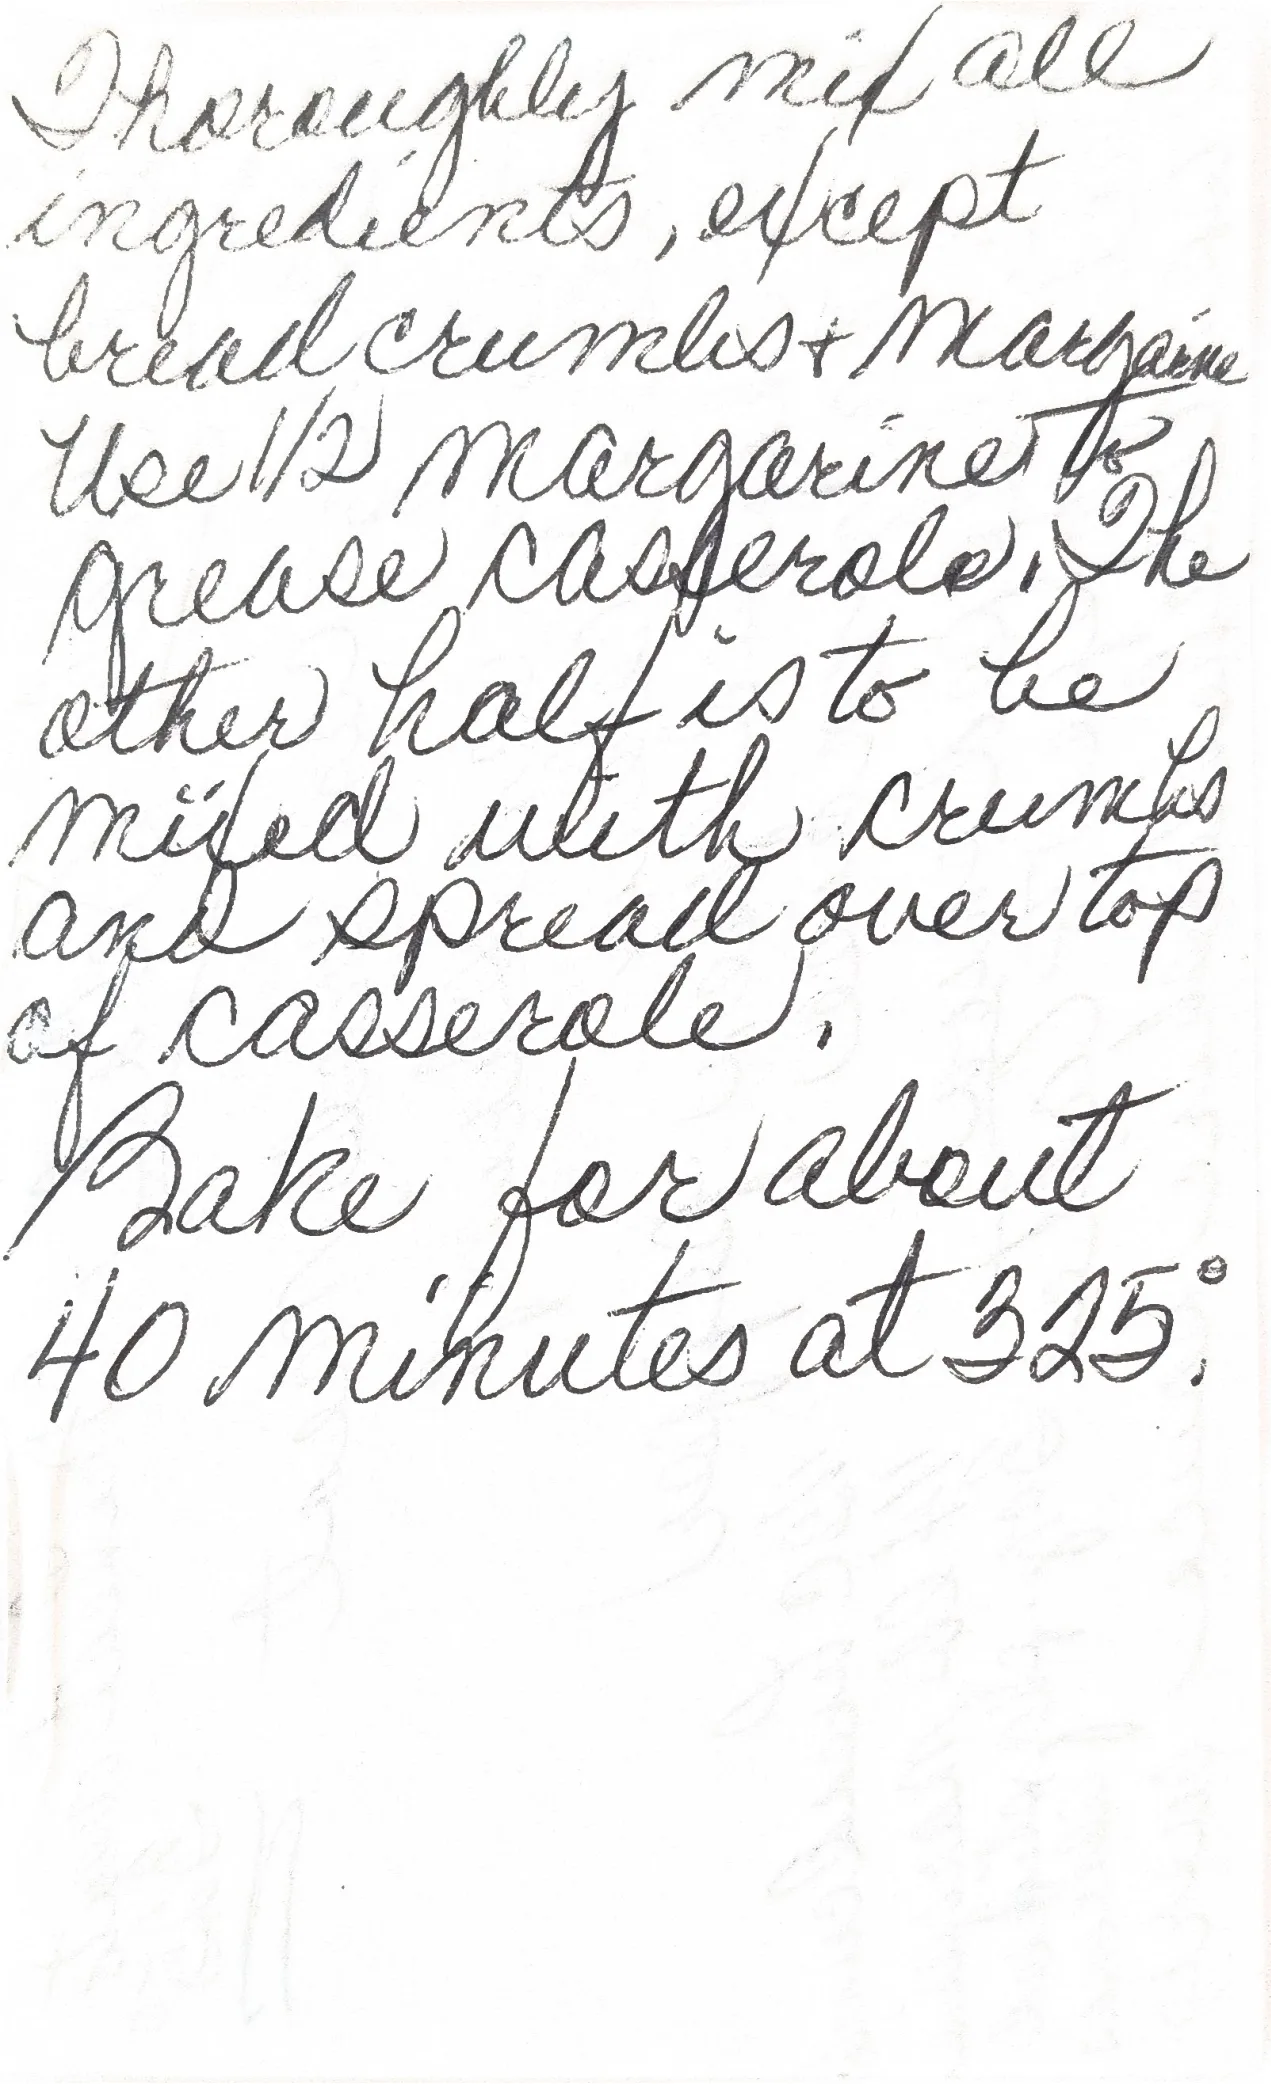 Thoroughly mix all
ingredients, except
bread crumbs + Margarine
Use 1/2 Margarine to
grease casserole. The
other half is to be
mixed with crumbs
and spread over top
of casserole.
Bake for about
40 minutes at 325°.